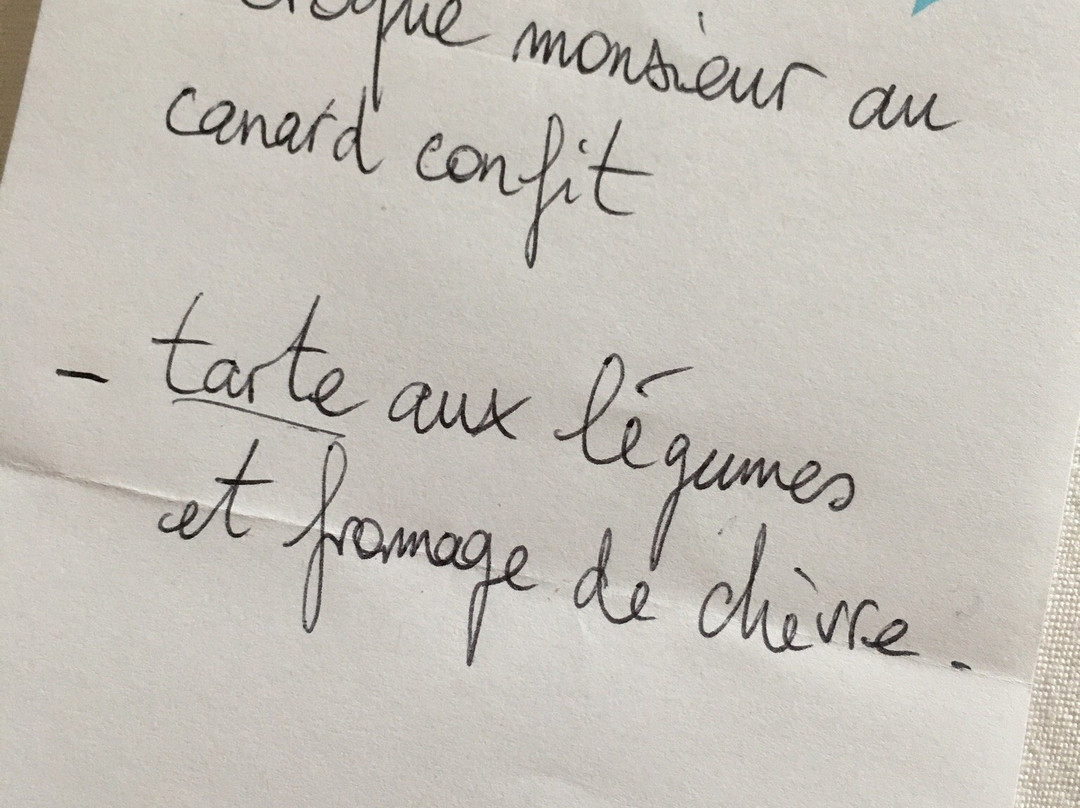 croque monsieur au
canard confit
- tarte aux légumes
et fromage de chèvre.